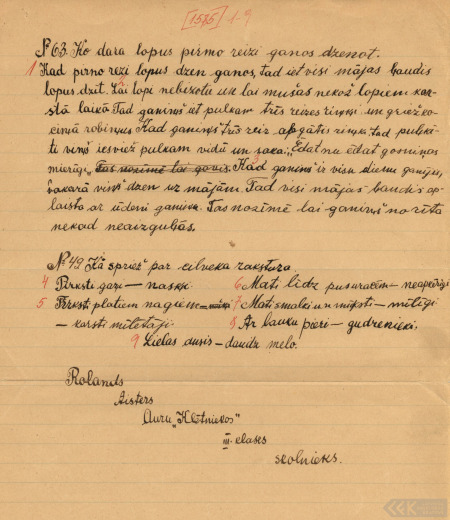 [1575] 1-9
№ 63. Ko dara lopus pirmo reizi ganos dzenot.
1 Kad pirno reizi lopus dzen ganos, tad iet visi mājas ļaudis
lopus dzīt. Lai lopi nebizotu un lai mušas nekož lopiem kar-
stā laikā 2 Tad ganiņš iet pulkam trīs reizes riņķi un griež ko-
ciņā robiņus Kad ganiņš trīs reiz apgājis riņķi tad pulkste-
ti viņš iesviež pulkam vidū un saka: „Ēdat nu ēdat gosniņas
mierīgi" Tas nozīmē lai govis. 3 Kad ganiņš ir visu dienu ganījis,
vakarā viņš dzen uz mājām. Tad visi mājas ļaudis ap-
laista ar ūdeni ganiņu. Tas nozīmē lai ganiņš no rīta
nekad neaizguļās.
№ 49 Kā spriež par cilvēka raksturu
4 Pirksti gaŗi — naski.
5 Pirksti platiem nagiem
— karsti mīlētāji.
6 Mati līdz pusuracēm — neapķērīgi
7 Mati smalki un mīksti — mīlīgi
8 Ar bauku pieri — gudrenieki.
9 Lielas ausis — daudz melo.
Rolands
Aisters
Auru „Klētniekos"
III. klases
skolnieks.